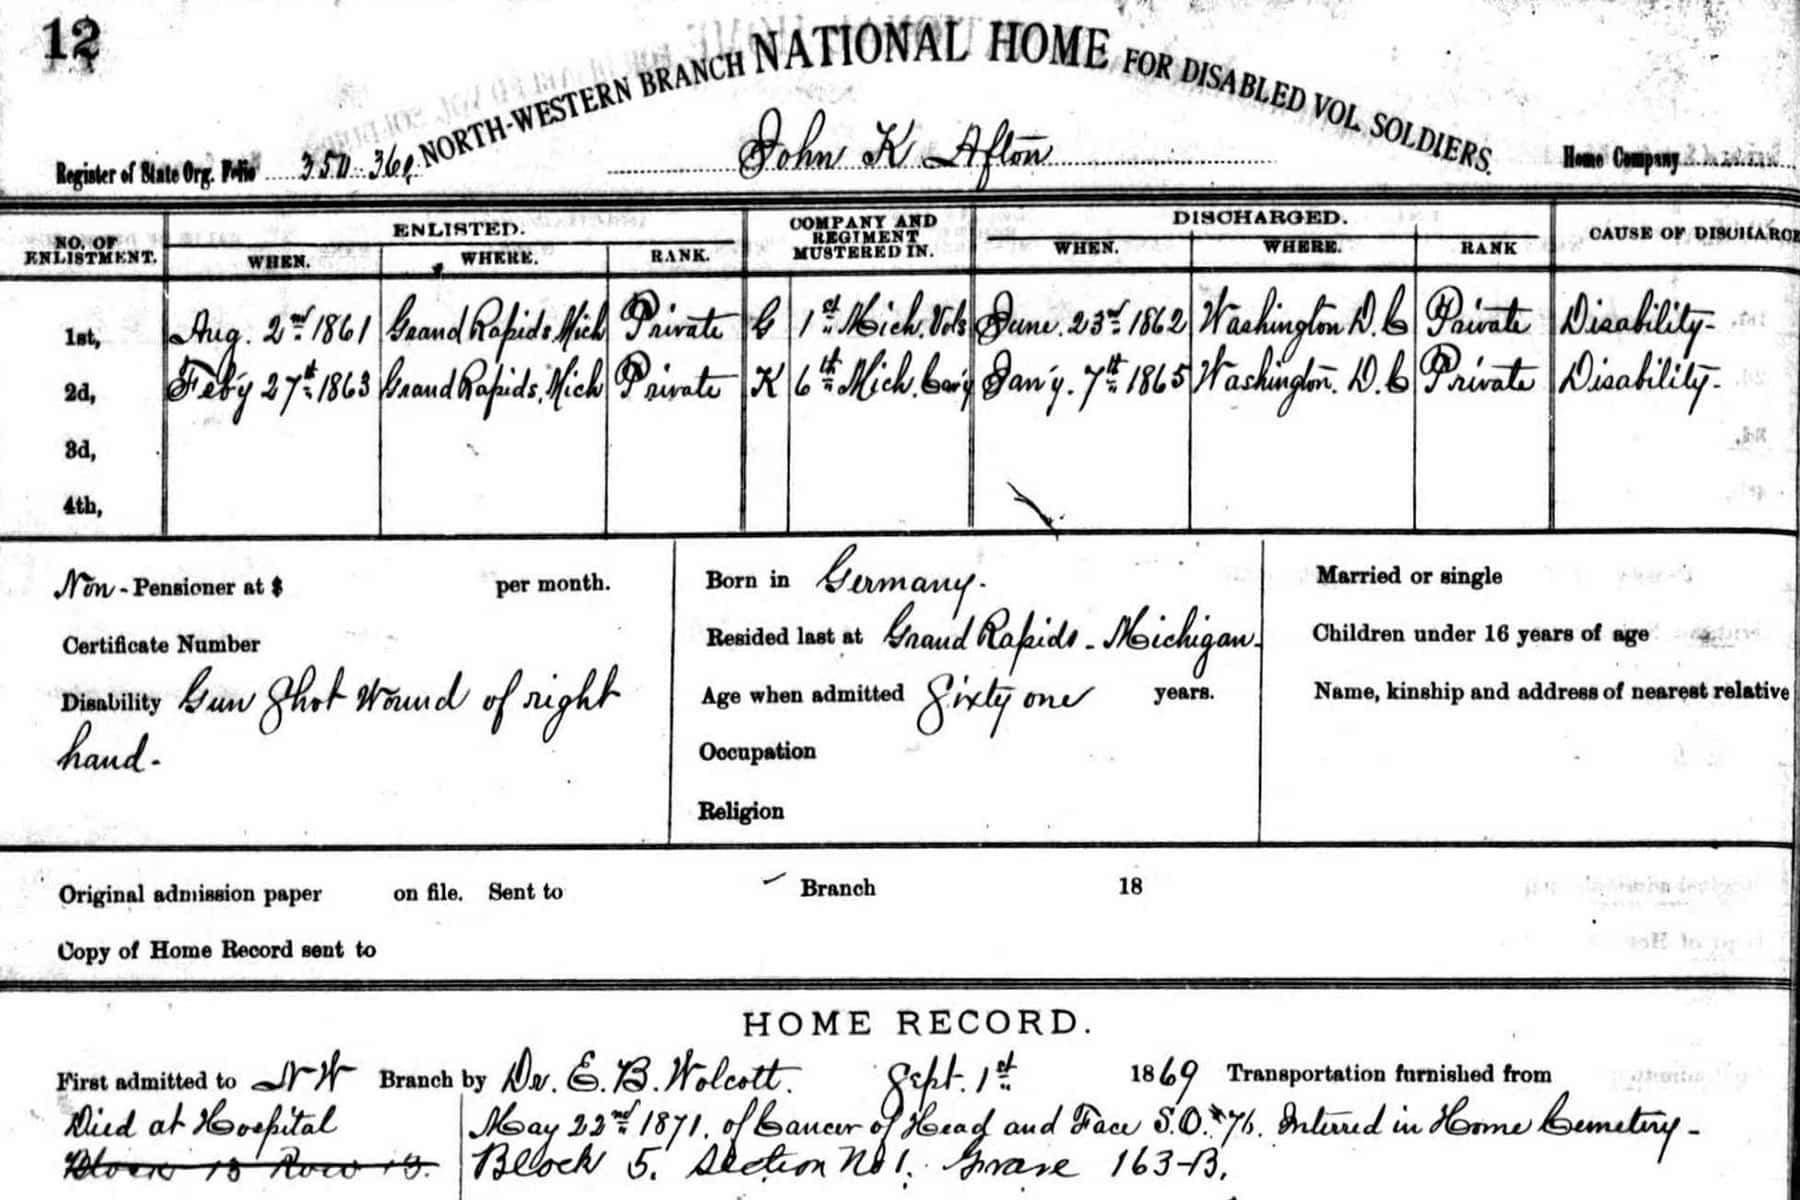 12
NORTH-WESTERN BRANCH NATIONAL HOME FOR DISABLED VOL. SOLDIERS.
Register of State Org. Folio 350-36 John K Afton Home Company
NO. OF ENLISTMENT. ENLISTED. COMPANY AND REGIMENT MUSTERED IN. DISCHARGED. CAUSE OF DISCHARGE
WHEN. WHERE. RANK. WHEN. WHERE. RANK
1st, Aug. 2nd 1861 Grand Rapids, Mich Private G 1st Mich. Vols June. 23rd 1862 Washington D. C Private Disability-
2d, Feb'y 27th 1863 Grand Rapids, Mich Private K 6th Mich. Cav'y Jan'y. 7th 1865 Washington. D. C Private Disability-
3d,
4th,
Non - Pensioner at $ per month. Born in Germany. Married or single
Certificate Number Resided last at Grand Rapids - Michigan. Children under 16 years of age
Disability Gun Shot Wound of right Age when admitted Sixty one years. Name, kinship and address of nearest relative
hand- Occupation
Religion
Original admission paper on file. Sent to Branch 18
Copy of Home Record sent to
HOME RECORD.
First admitted to N W Branch by Dr. E. B. Wolcott. Sept. 1st 1869 Transportation furnished from
Died at Hospital May 22nd 1871. of Cancer of Head and Face S.O. #76. Interred in Home Cemetery-
Block 13 Row 13. Block 5. Section No 1. Grave 163-B.